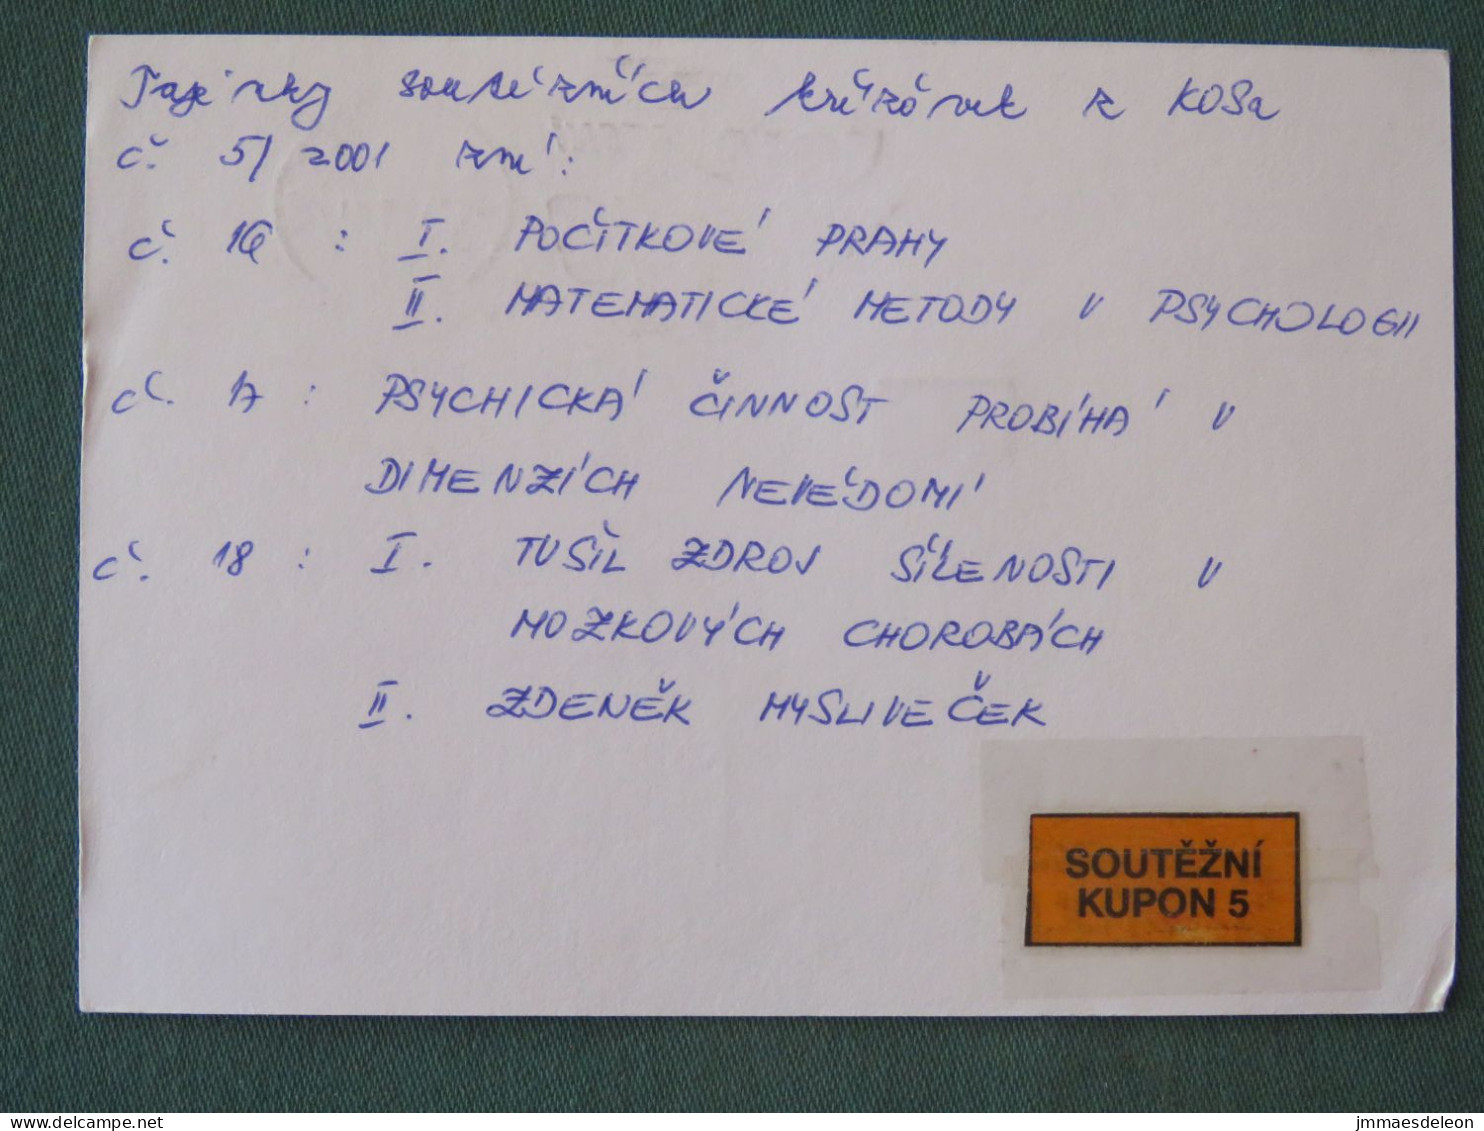 Tajenky soutěžních křížovek z KOSa
č. 5/2001 zní:
č. 16 : I. POČÍTKOVÉ PRAHY
II. MATEMATICKÉ METODY V PSYCHOLOGII
č. 17 : PSYCHICKÁ ČINNOST PROBÍHÁ V
DIMENZÍCH NEVĚDOMÍ
č. 18 : I. TUŠIL ZDROJ ŠÍLENOSTI V
MOZKOVÝCH CHOROBÁCH
II. ZDENĚK MYSLIVEČEK
SOUTĚŽNÍ
KUPON 5
delcampe.net
jmmaesdeleon